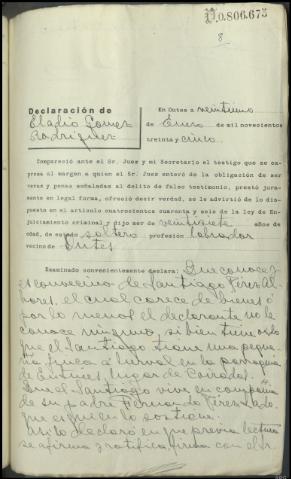 11.0.806.673
8
Declaración de
Eladio Gomez
Rodriguez
En Outes a veintiuno
de Enero de mil novecientos
treinta y cinco
Compareció ante el Sr. Juez y mi Secretario el testigo que se ex-
presa al margen a quien el Sr. Juez enteró de la obligación de ser
veraz y penas señaladas al delito de falso testimonio, prestó jura-
mento en legal forma, ofreció decir verdad, se le advirtió de lo dis-
puesto en el artículo cuatrocientos cuarenta y seis de la Ley de En-
juiciamiento criminal y dijo ser de veintisiete años de
edad, de estado soltero profesión labrador
vecino de Outes
Examinado convenientemente declara: Que conoce y
es convecino de Santiago Pérez
el cual carece de bienes ó
por lo menos el declarante no le
conoce ninguno, si bien
que el Santiago una peque-
ña finca á en la parroquia
de Entines, lugar de
Que el Santiago vive en compañia
de su padre Fernando Pérez
que es quien lo sostiene.
Asi lo declaró en que previa lectura
se afirma y ratifica, firma con el Sr.